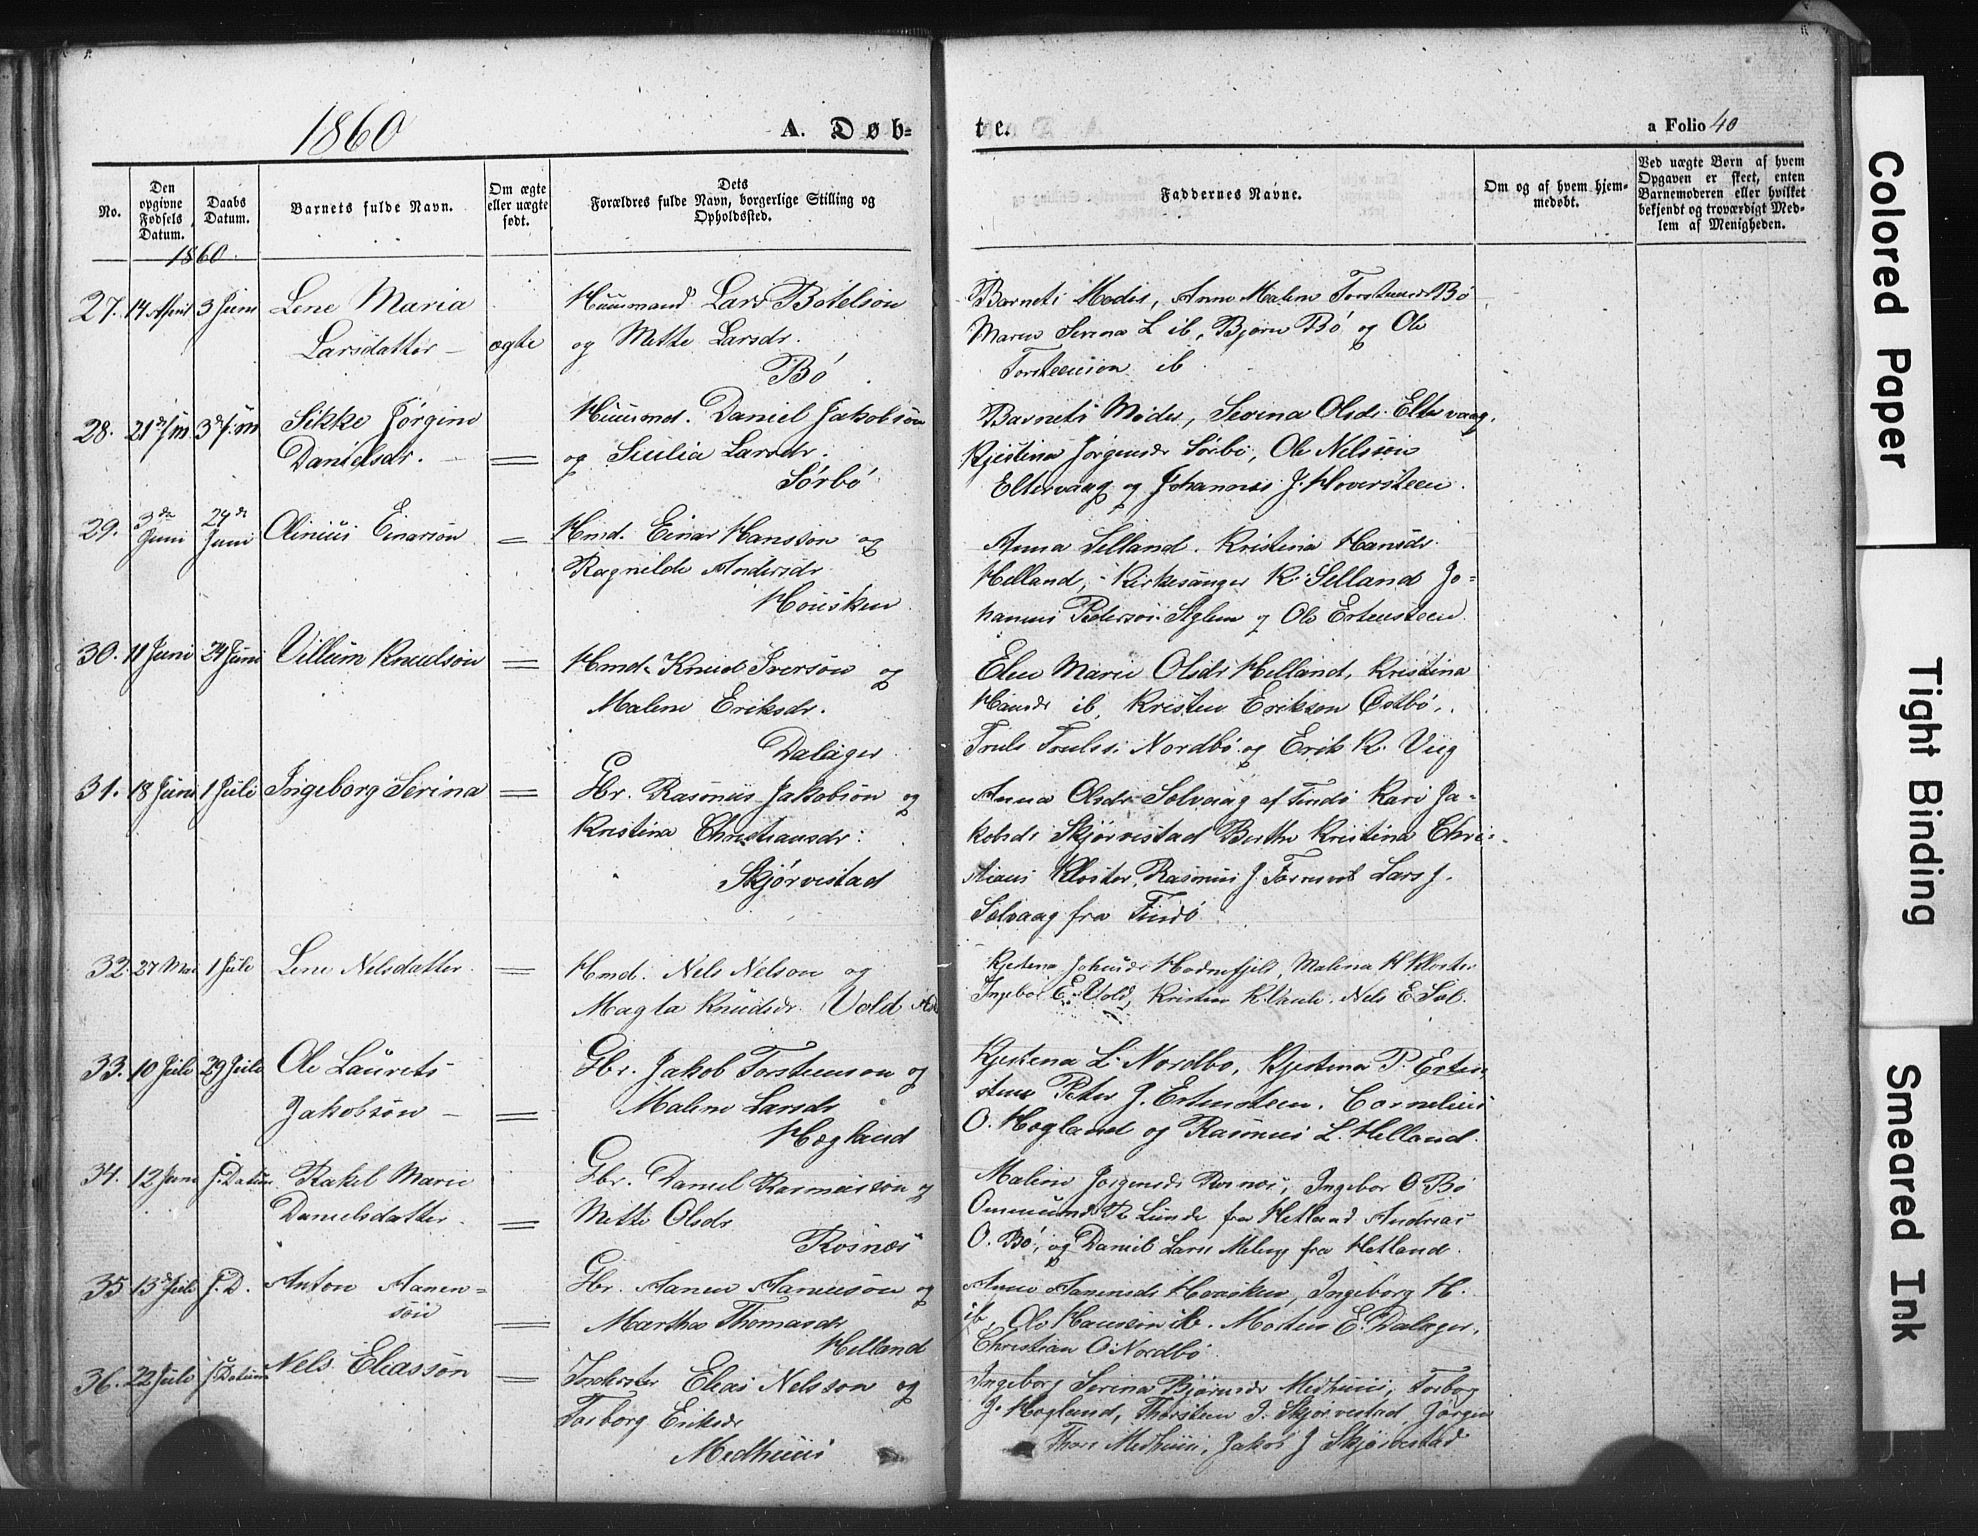 1860
A. Døb-
te.
a Folio 40
No.
Den opgivne Fødsels Datum.
Daabs Datum.
Barnets fulde Navn.
Om ægte eller uægte født.
Dets Forældres fulde Navn, borgerlige Stilling og Opholdssted.
Faddernes Navne.
Om og af hvem hjemmedøbt.
Ved uægte Børn af hvem Opgaven er skeet, enten Barnemoderen eller hvilket bekjendt og troværdigt Medlem af Menigheden.
1860.
27. 14 April 3 Juni Lene Maria
Larsdatter – ægte
Huusmand Lars Botelson
og Mette Larsdr.
Bø
Barnets Moder, Anne Malene Torsteensdr Bø
Maren Serina L ib, Bjørn Bø og Ole
Torsteenson ib.
28. 21de 3de Sikke Jørgine
Danielsdr. –
Huusmd. Daniel Jakobson
og Larsdr.
Sørbø
Barnets Moder, Serina Olsdr Eltervaag,
Kjestina Jørgensdr Sørbø, Ole Nelsson
Eltervaag og Johannes J. Hoversteen.
29. 3de Juni 24de Juni Olinius Einarson
Hmd. Einar Hansson og
Ragnilde Andersdr.
Housken
Anna Selland. Kristina Hansdr.
Helland, Kirkesanger K. Selland Jo-
hannes Pederson og Ole Ertensteen.
30. 11 Juni 24 Juni Villum Knudson
Hmd. Knud Iverson og
Malene Eriksdr.
Dalager
Elen Marie Olsdr Helland, Kristina
Hansdr ib, Kristen Erikson Østbø,
Truls Nordbø og Erik K. Viig
31. 18 Juni 1 Juli Ingeborg Serina
Gbr. Rasmus Jakobson og
Kristina Christiansdr:
Skjørvestad
Anna Olsdr Solvaag af Findø Kari Ja-
kobsdr Skjørvestad Berthe Kristina Chri-
stians Kloster, Rasmus J. Lars J.
Solvaag fra Findø
32. 27 Mai 1 Juli Lene Nelsdatter.
Hmd. Nels Nelson og
Magla Knudsdr. Vold
Kjestena Hodnefjeld, Malena H Kloster
Ingebor E. Vold, Kristen K. Nels E
33. 10 Juli 29 Juli Ole Laurets
Jakobson –
Gbr. Jakob Torsteenson og
Malene Larsdr
Hogland
Kjestena L. Nordbø, Kjestena P. Erten-
steen Peter J. Ertensteen. Cornelius
O. Hogland og Rasmus L. Helland.
34. 12 Juni s. Datum Rakel Marie
Danielsdatter.
Gbr. Daniel Rasmusson og
Mette Olsdr
Rosnæs
Malene Jørgensdr Rosnæs, Ingebor O Bø
Ommund R Lunde fra Hetland Andreas
O. Bø, og Daniel Lars Meling fra Hetland.
35. 13de Juli s. D. Anton Aanen-
son
Gbr. Aanen Aanenson og
Martha Thomasdr
Helland
Anne Aanensdr Housken, Ingeborg H.
ib, Ole Hansson ib. Morten E. Dalager,
Christian O. Nordbø
36. 22 Juli s. Datum Nels Eliassøn
Inderster Elias Nelsson og
Torborg Eriksdr
Medhuus
Ingeborg Serina Bjørnsdr Medhuus, Torborg
J. Hogland, Thorsteen J. Skjørvestad, Jørgen
Medhuus, Jakob J Skjørvestad
Colored Paper
Tight Binding
Smeared Ink